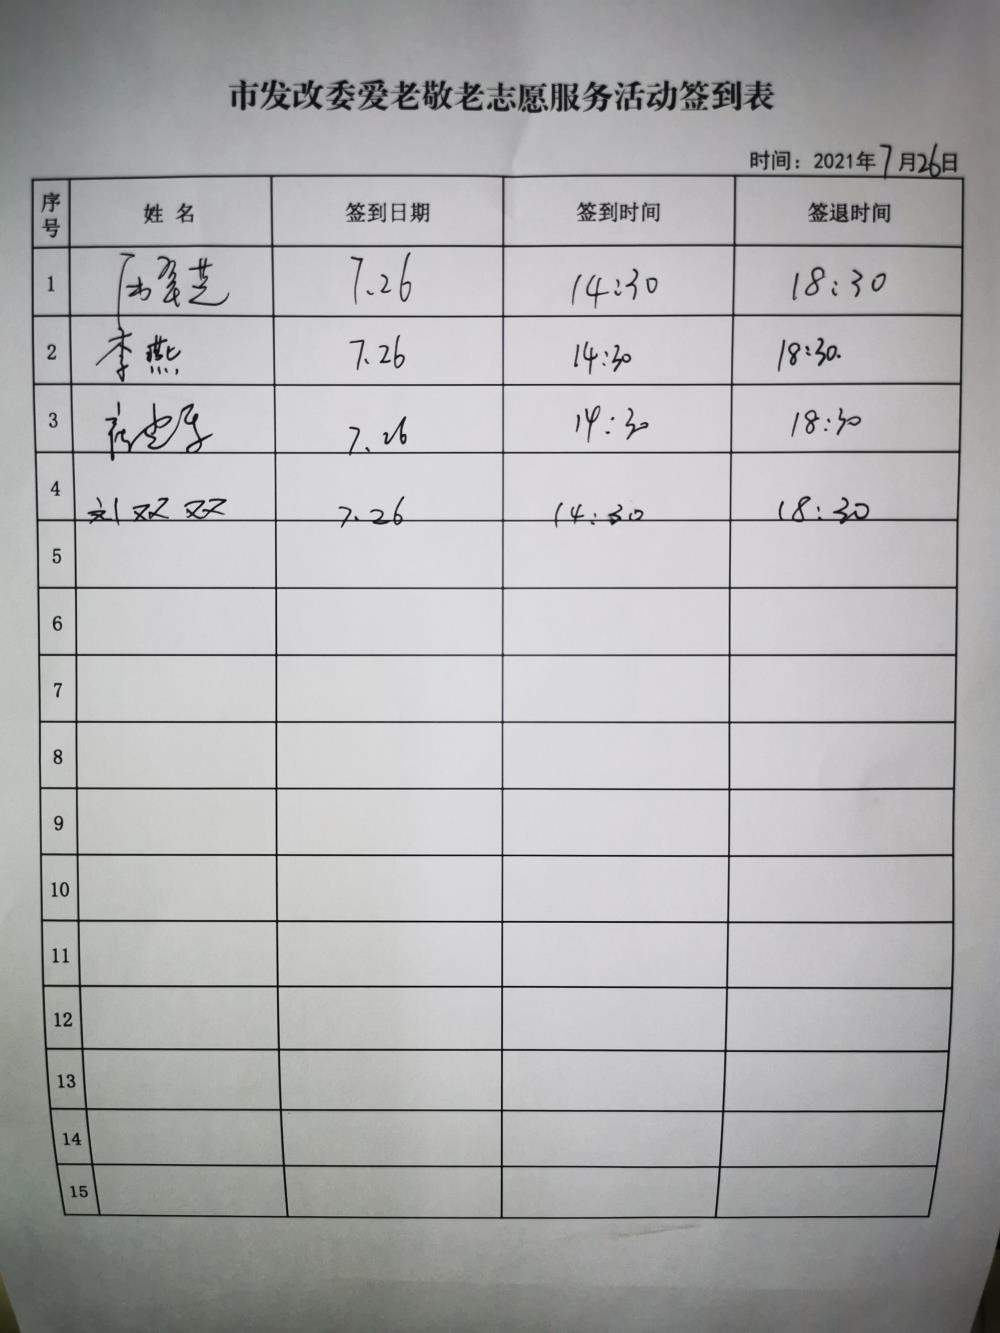 市发改委爱老敬老志愿服务活动签到表
时间：2021年7月26日
序号 姓 名 签到日期 签到时间 签退时间
1 7.26 14:30 18:30
2 李燕 7.26 14:30 18:30.
3 7.26 14:30 18:30
4 刘双双 7.26 14:30 18:30
5
6
7
8
9
10
11
12
13
14
15